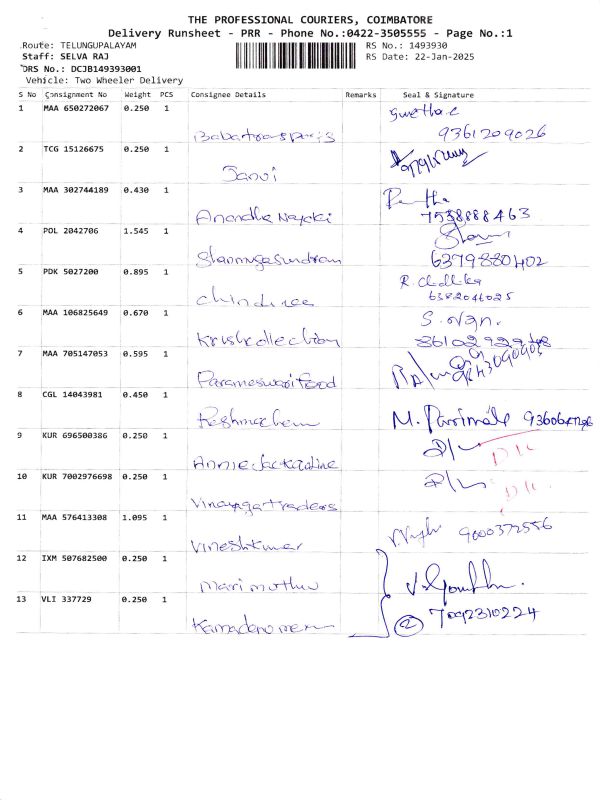 THE PROFESSIONAL COURIERS, COIMBATORE
Delivery Runsheet - PRR - Phone No.:0422-3505555 - Page No.:1
Route: TELUNGUPALAYAM RS No.: 1493930
Staff: SELVA RAJ RS Date: 22-Jan-2025
DRS No.: DCJB149393001
Vehicle: Two Wheeler Delivery
S No Consignment No Weight PCS Consignee Details Remarks Seal & Signature
1 MAA 650272067 0.250 1 Swetha.c
9361209026
2 TCG 15126675 0.250 1
Janvi
3 MAA 302744189 0.430 1
Anandha Nayaki 7538888463
4 POL 2042706 1.545 1
Shanmugasundram 6379880402
5 PDK 5027200 0.895 1
6382046025
6 MAA 106825649 0.670 1
7 MAA 705147053 0.595 1
Parameswari Food
8 CGL 14043981 0.450 1
M. Parimala
9 KUR 696500386 0.250 1 D/L
D/L
10 KUR 7002976698 0.250 1 D/L
Vinayaga traders D/L
11 MAA 576413308 1.095 1
Vineshkumar
12 IXM 507682500 0.250 1
Mari muthu
13 VLI 337729 0.250 1 7092310224
2